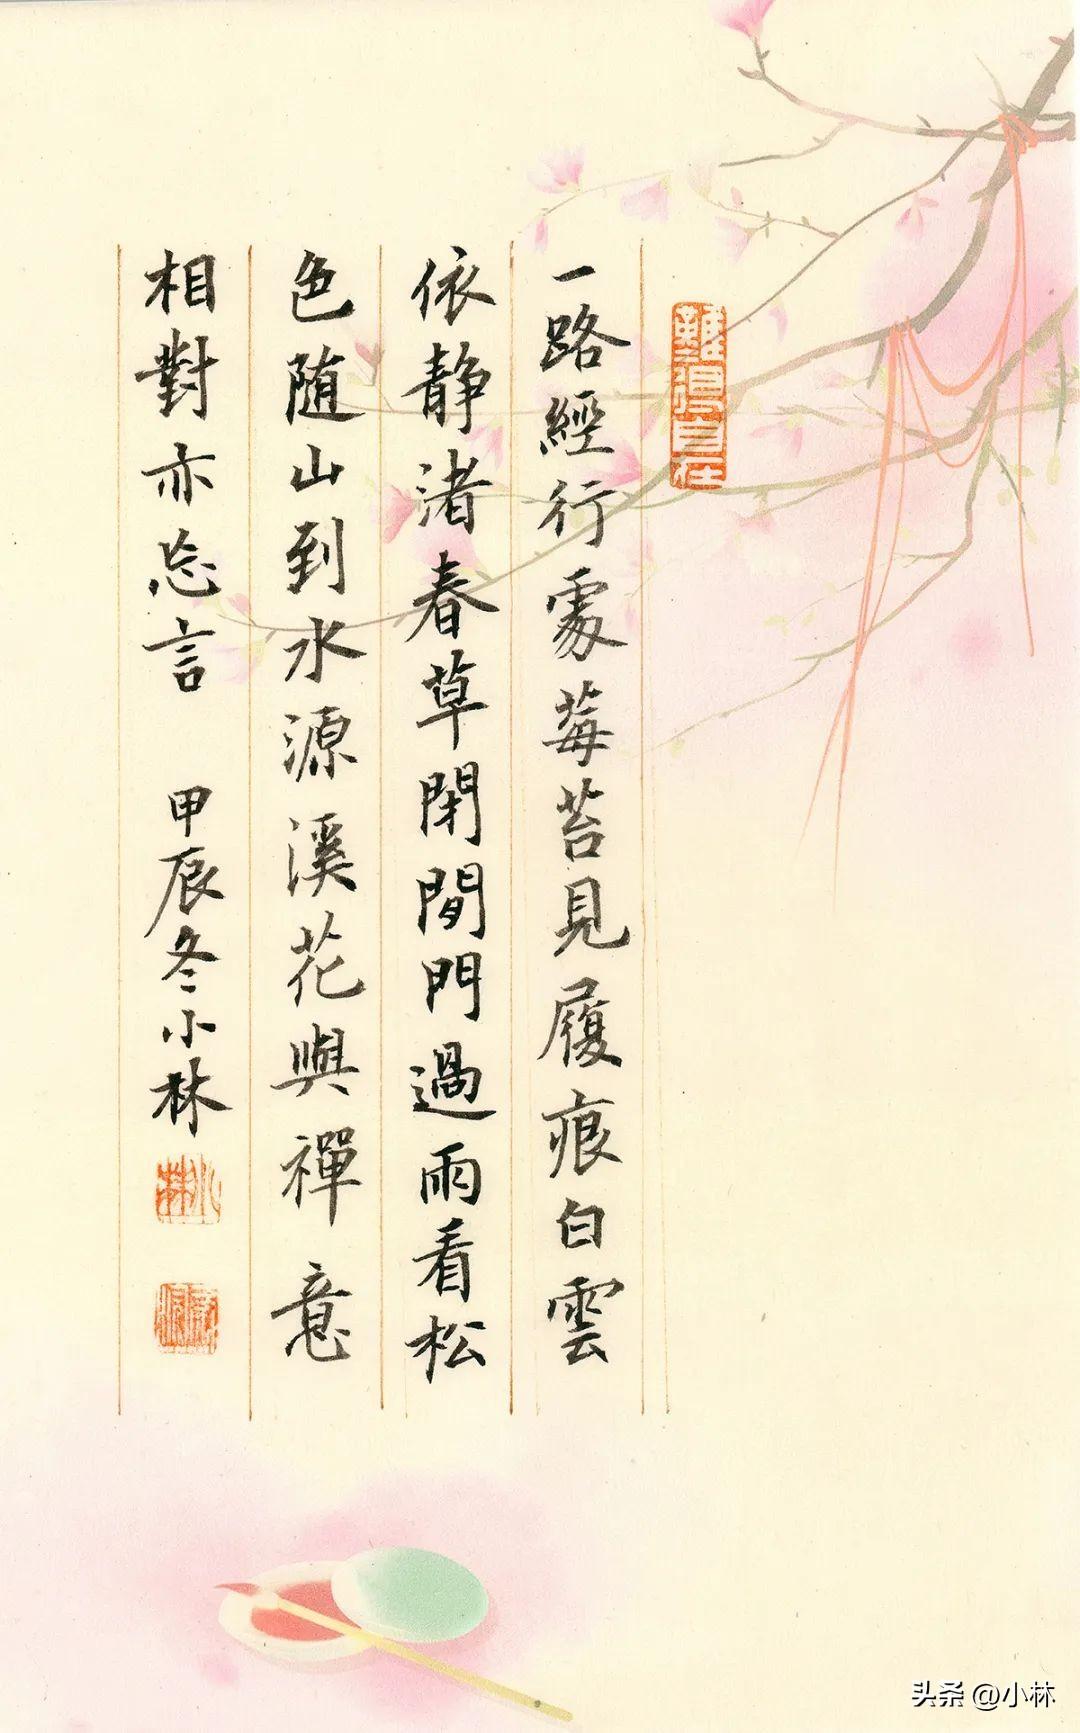 難得自在
一路經行處莓苔見履痕白雲
依静渚春草閉閒門過雨看松
色随山到水源溪花與禪意
相對亦忘言 甲辰冬小林
小林
头条 @小林